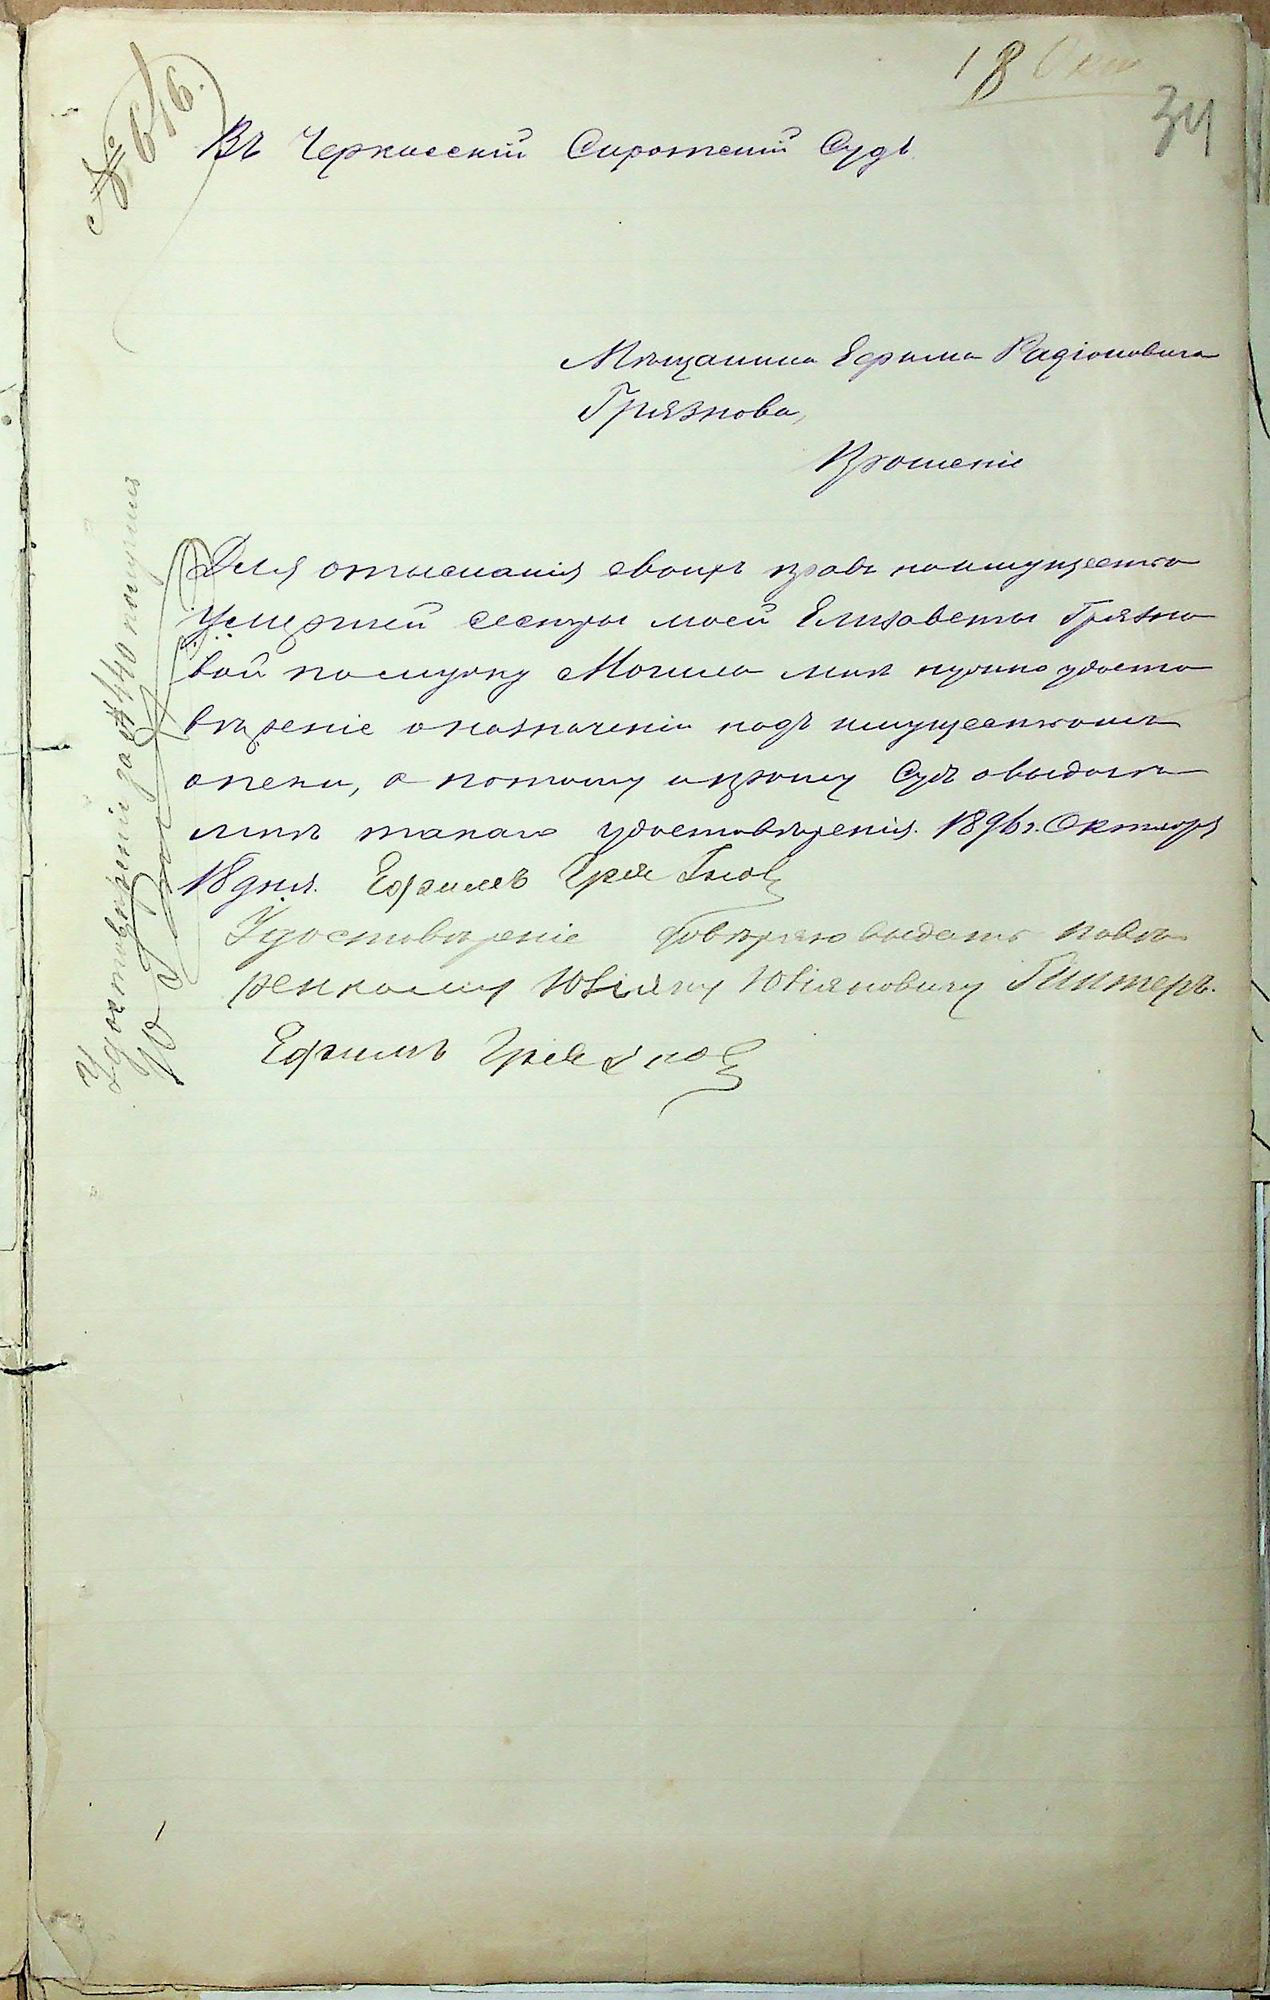 18 Окт
34
№ 616.
Въ Черкасскій Сиротскій Судъ.
Мѣщанина Ефима Радіоновича
Грязнова,
Прошеніе
Для отысканія своихъ правъ наимущество
умершей сестры моей Елизаветы Грязно
вой помужу Могила мнѣ нужно удосто
вѣреніе оназначеніи надъ имуществомъ
опеки, а потому и прошу Судъ овыдачѣ
мнѣ такаго удостовѣренія. 1896 г. Октября
18 дня. Ефимъ Грязновъ
Удостовѣреніе довѣряю выдать повѣ
ренному Юліяну Юліяновичу Гинтеръ.
Ефимъ Грязновъ
Удостовѣреніе за № 440 получилъ
Ю